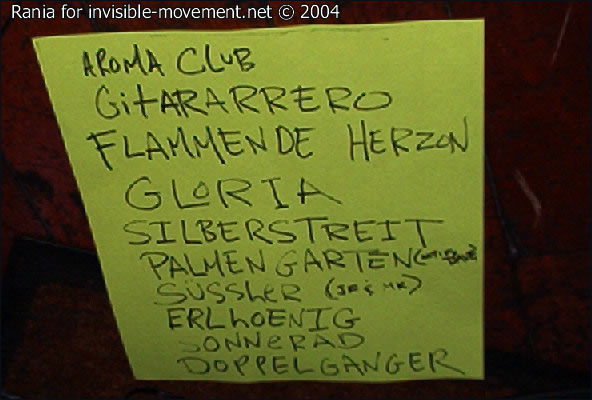 Rania for invisible-movement.net © 2004
AROMA CLUB
GitARARRERO
FLAMMENDE HERZON
GLORIA
SILBERSTREIT
PALMEN GARTEN
SÜSSHER (JR & MK)
ERLhOENIG
SONNERAD
DOPPELGANGER